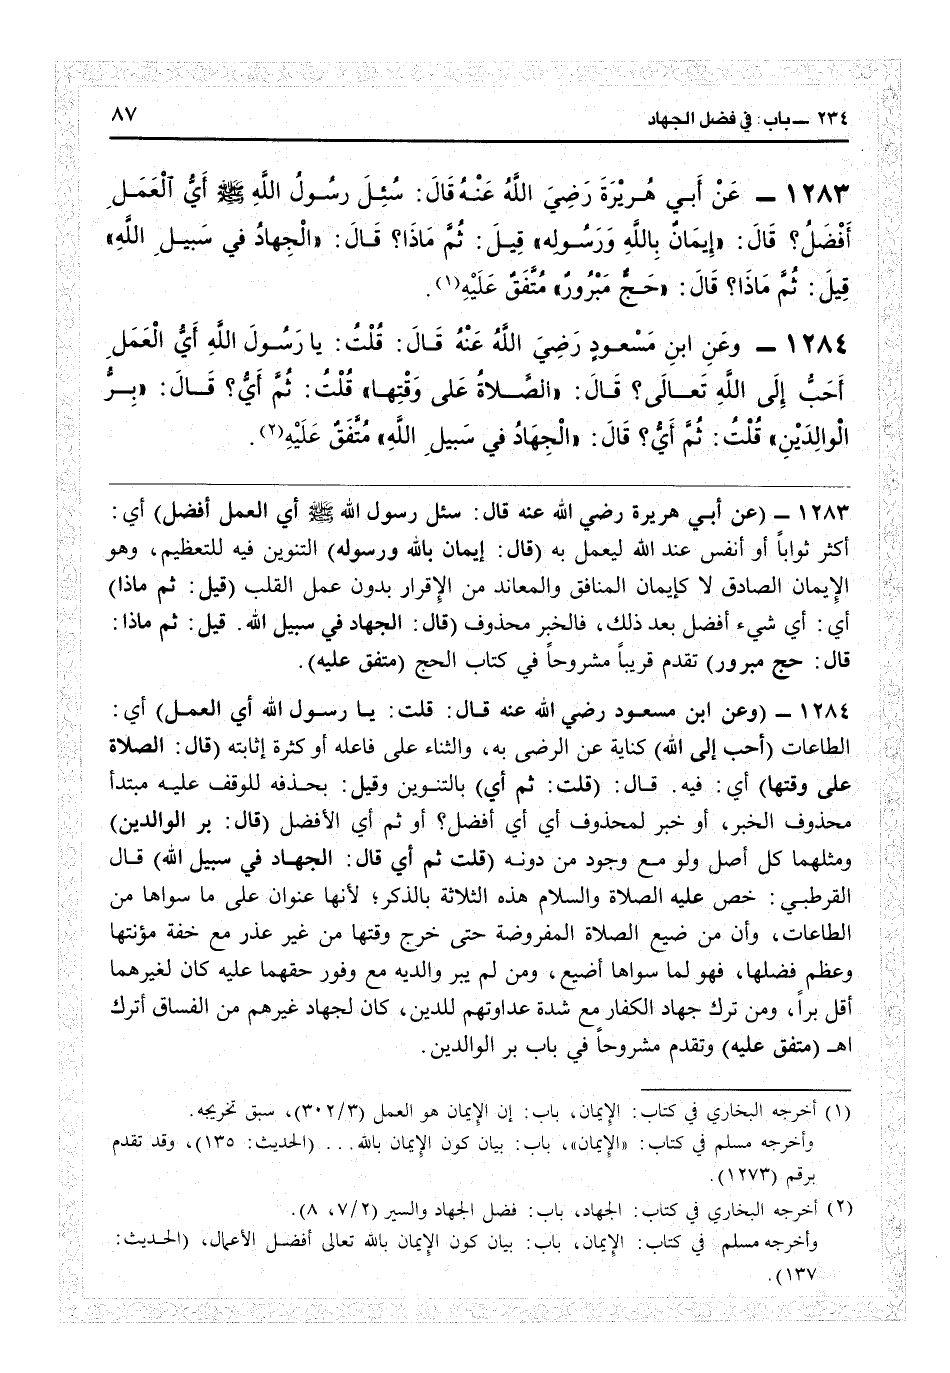 ٢٣٤ ــ باب: في فضل الجهاد
٨٧
١٢٨٣ ــ عَنْ أَبي هُـرَيْرَةَ رَضِيَ اللَّهُ عَنْـهُ قَالَ: سُئِـلَ رسُـولُ اللَّهِ ﷺ أَيُّ الْعَمَـلِ
أَفْضَلُ؟ قَالَ: «إِيمَانٌ بِاللَّهِ وَرَسُـولِه» قِيلَ: ثُمَّ مَاذَا؟ قَـالَ: «الْجِهادُ في سَبيـلِ اللَّهِ»
قِيلَ: ثُمَّ مَاذَا؟ قَالَ: «حَجٌّ مَبْرُورٌ» مُتَّفَقٌ عَلَيْهِ(١).
١٢٨٤ ــ وعَنِ ابنِ مَسْعودٍ رَضِيَ اللَّهُ عَنْهُ قَـالَ: قُلْتُ: يا رَسُولَ اللَّهِ أَيُّ الْعَمَلِ
أَحَبُّ إِلَى اللَّهِ تَعـالَى؟ قَـالَ: «الصَّـلاةُ عَلى وَقْتِهـا» قُلْتُ: ثُمَّ أَيُّ؟ قَـالَ: «بِـرُّ
الْوالِدَيْنِ» قُلْتُ: ثُمَّ أَيُّ؟ قَالَ: «الْجِهَادُ في سَبيلِ اللَّهِ» مُتَّفَقٌ عَلَيْهِ(٢).
١٢٨٣ ــ (عن أبـي هريرة رضي الله عنه قال: سئل رسول الله ﷺ أي العمل أفضل) أي:
أكثر ثواباً أو أنفس عند الله ليعمل به (قال: إيمان بالله ورسوله) التنوين فيه للتعظيم، وهو
الإِيمان الصادق لا كإيمان المنافق والمعاند من الإِقرار بدون عمل القلب (قيل: ثم ماذا)
أي: أي شيء أفضل بعد ذلك، فالخبر محذوف (قال: الجهاد في سبيل الله. قيل: ثم ماذا:
قال: حج مبرور) تقدم قريباً مشروحاً في كتاب الحج (متفق عليه).
١٢٨٤ ــ (وعن ابن مسعود رضي الله عنه قـال: قلت: يـا رسـول الله أي العمـل) أي:
الطاعات (أحب إلى الله) كناية عن الرضى به، والثناء على فاعله أو كثرة إثابته (قال: الصلاة
على وقتها) أي: فيه. قـال: (قلت: ثم أي) بالتنـوين وقيل: بحـذفه للوقف عليـه مبتدأ
محذوف الخبر، أو خبر لمحذوف أي أي أفضل؟ أو ثم أي الأفضل (قال: بر الوالدين)
ومثلهما كل أصل ولو مـع وجود من دونـه (قلت ثم أي قال: الجهـاد في سبيل الله) قـال
القرطبـي: خص عليه الصلاة والسلام هذه الثلاثة بالذكر؛ لأنها عنوان على ما سواها من
الطاعات، وأن من ضيع الصلاة المفروضة حتى خرج وقتها من غير عذر مع خفة مؤنتها
وعظم فضلها، فهو لما سواها أضيع، ومن لم يبر والديه مع وفور حقهما عليه كان لغيرهما
أقل براً، ومن ترك جهاد الكفار مع شدة عداوتهم للدين، كان لجهاد غيرهم من الفساق أترك
اهـ (متفق عليه) وتقدم مشروحاً في باب بر الوالدين.
(١) أخرجه البخاري في كتاب: الإِيمان، باب: إن الإِيمان هو العمل (٣٠٢/٣)، سبق تخريجه.
وأخرجه مسلم في كتاب: «الإِيمان»، باب: بيان كون الإِيمان بالله... (الحديث: ١٣٥)، وقد تقدم
برقم (١٢٧٣).
(٢) أخرجه البخاري في كتاب: الجهاد، باب: فضل الجهاد والسير (٧/٢، ٨).
وأخرجه مسلم في كتاب: الإِيمان، باب: بيان كون الإِيمان بالله تعالى أفضـل الأعمال، (الحـديث:
١٣٧).